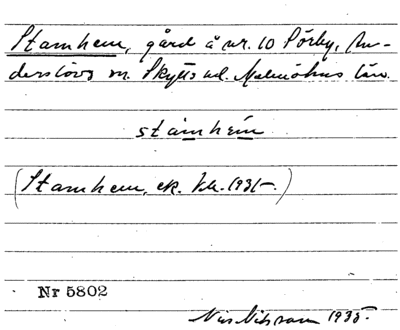 Stamhem, gård å nr. 10 Pörby, An-
derslövs sn. Skytts hd. Malmöhus län.
stamhem
(Stamhem, ek. kk. 1931-.)
Nr 5802
Nils Nilsson 1935.